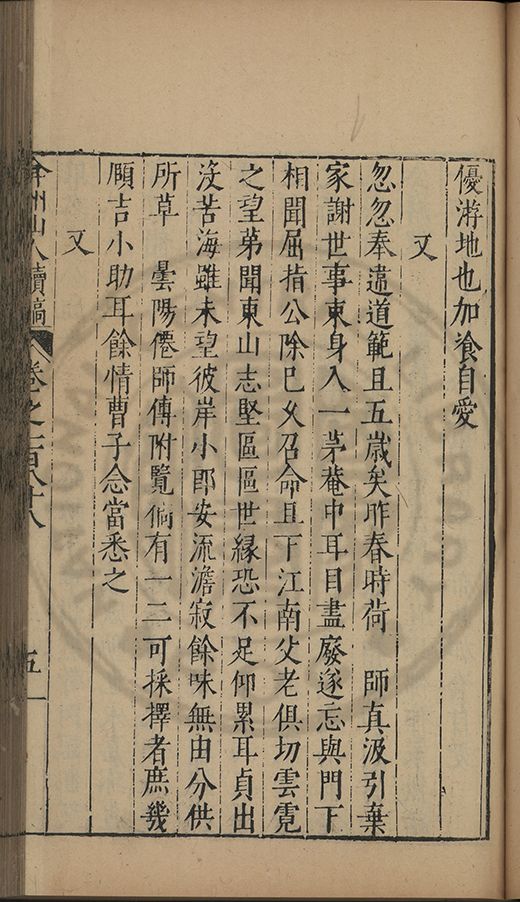 優游地也加飡自愛
又
忽忽奉違道範且五歲矣昨春時荷　師真汲引棄
家謝世事束身入一茅菴中耳目盡廢遂忘與門下
相聞屈指公除已久召命且下江南父老俱切雲霓
之望苐聞東山志堅區區世緣恐不足仰累耳貞出
沒苦海雖未望彼岸小郎安流澹寂餘味無由分供
所草　曇陽僊師傳附覽倘有一二可採擇者庶幾
頤吉小助耳餘情曹子念當悉之
又
弇州山人續稿　卷之一百八十八　五